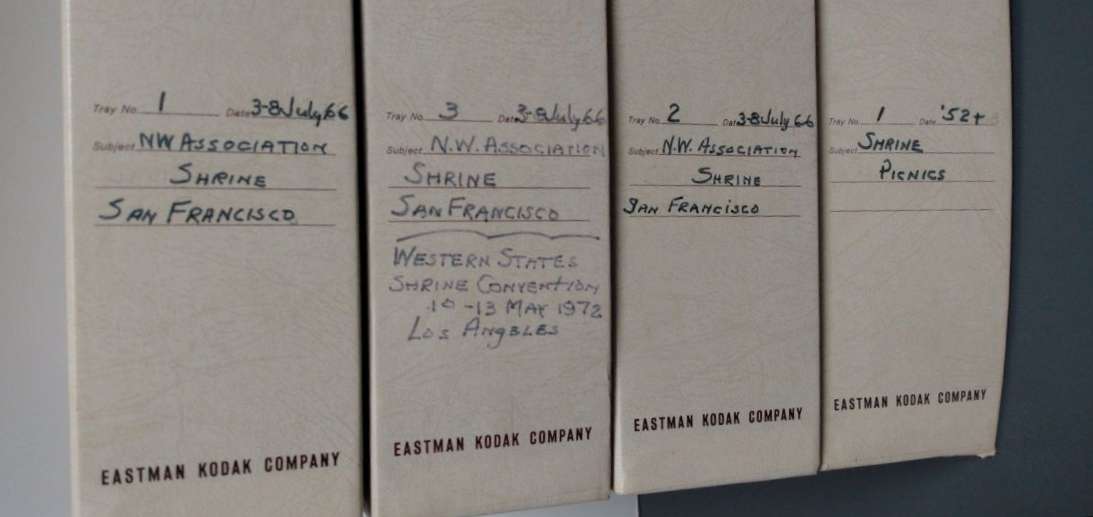 Tray No. 1 Date 3-8 July 66
Subject NW ASSOCIATION
SHRINE
SAN FRANCISCO
EASTMAN KODAK COMPANY
Tray No. 3 Date 3-8 July 66
Subject N.W. ASSOCIATION
SHRINE
SAN FRANCISCO
WESTERN STATES
SHRINE CONVENTION
10-13 MAY 1972
LOS ANGELES
EASTMAN KODAK COMPANY
Tray No. 2 Date 3-8 July 66
Subject N.W. ASSOCIATION
SHRINE
SAN FRANCISCO
EASTMAN KODAK COMPANY
Tray No. 1 Date '52+
Subject SHRINE
PICNICS
EASTMAN KODAK COMPANY